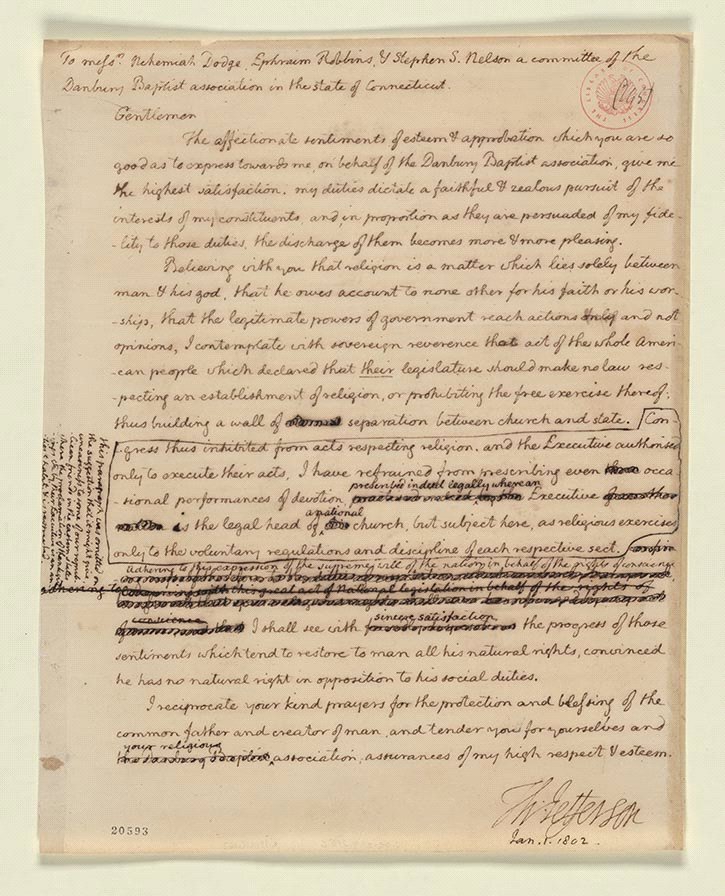 To messrs. Nehemiah Dodge, Ephraim Robbins, & Stephen S. Nelson a committee of the
Danbury Baptist association in the state of Connecticut.
Gentlemen
The affectionate sentiments of esteem & approbation which you are so
good as to express towards me, on behalf of the Danbury Baptist association, give me
the highest satisfaction. my duties dictate a faithful & zealous pursuit of the
interests of my constituents, and, in proportion as they are persuaded of my fide-
-lity to those duties, the discharge of them becomes more & more pleasing.
Believing with you that religion is a matter which lies solely between
man & his god, that he owes account to none other for his faith or his wor-
-ship, that the legitimate powers of government reach actions only and not
opinions, I contemplate with sovereign reverence that act of the whole Ameri-
-can people which declared that their legislature should make no law res-
-pecting an establishment of religion, or prohibiting the free exercise thereof;
thus building a wall of separation between church and state. Con-
-gress thus inhibited from acts respecting religion, and the Executive authorised
only to execute their acts, I have refrained from prescribing even occa
-sional performances of devotion,
prescribed indeed legally where an
Executive
is the legal head of
a national
church, but subject here, as religious exercises
only to the voluntary regulations and discipline of each respective sect.
adhering to this expression of the supreme will of the nation in behalf of the rights of conscience
adhering to
conscience
sincere satisfaction
I shall see with the progress of those
sentiments which tend to restore to man all his natural rights, convinced
he has no natural right in opposition to his social duties.
I reciprocate your kind prayers for the protection and blessing of the
common father and creator of man, and tender you for yourselves and
your religious
the Danbury Baptist association, assurances of my high respect & esteem.
Th Jefferson
Jan. 1. 1802.
20593
this paragraph was omitted on
the suggestion that it might give
uneasiness to some of our republi-